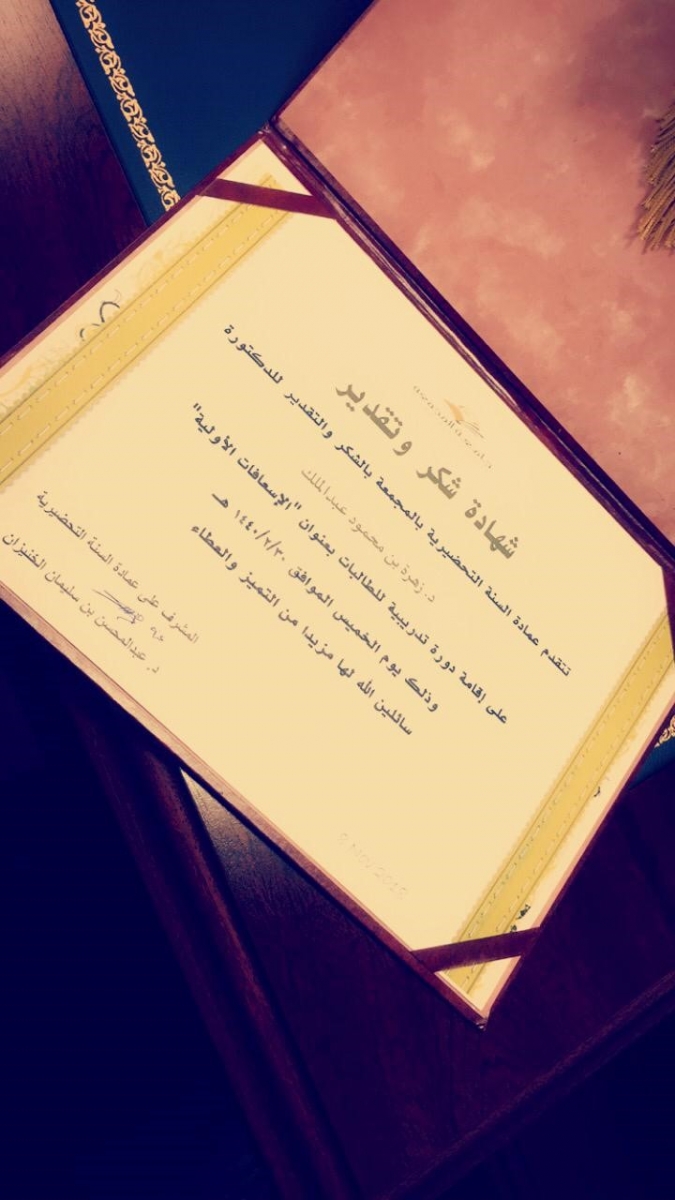 شهادة شكر وتقدير
تتقدم عمادة السنة التحضيرية بالمجمعة بالشكر والتقدير للدكتورة
د. زهرة بن محمود عبدالملك
على إقامة دورة تدريبية للطالبات بعنوان "الإسعافات الأولية"
وذلك يوم الخميس الموافق ١٤٤٠/٢/٣٠ هـ
سائلين الله لها مزيدا من التميز والعطاء
المشرف على عمادة السنة التحضيرية
د. عبدالمحسن بن سليمان الخنيزان
8 Nov 2018